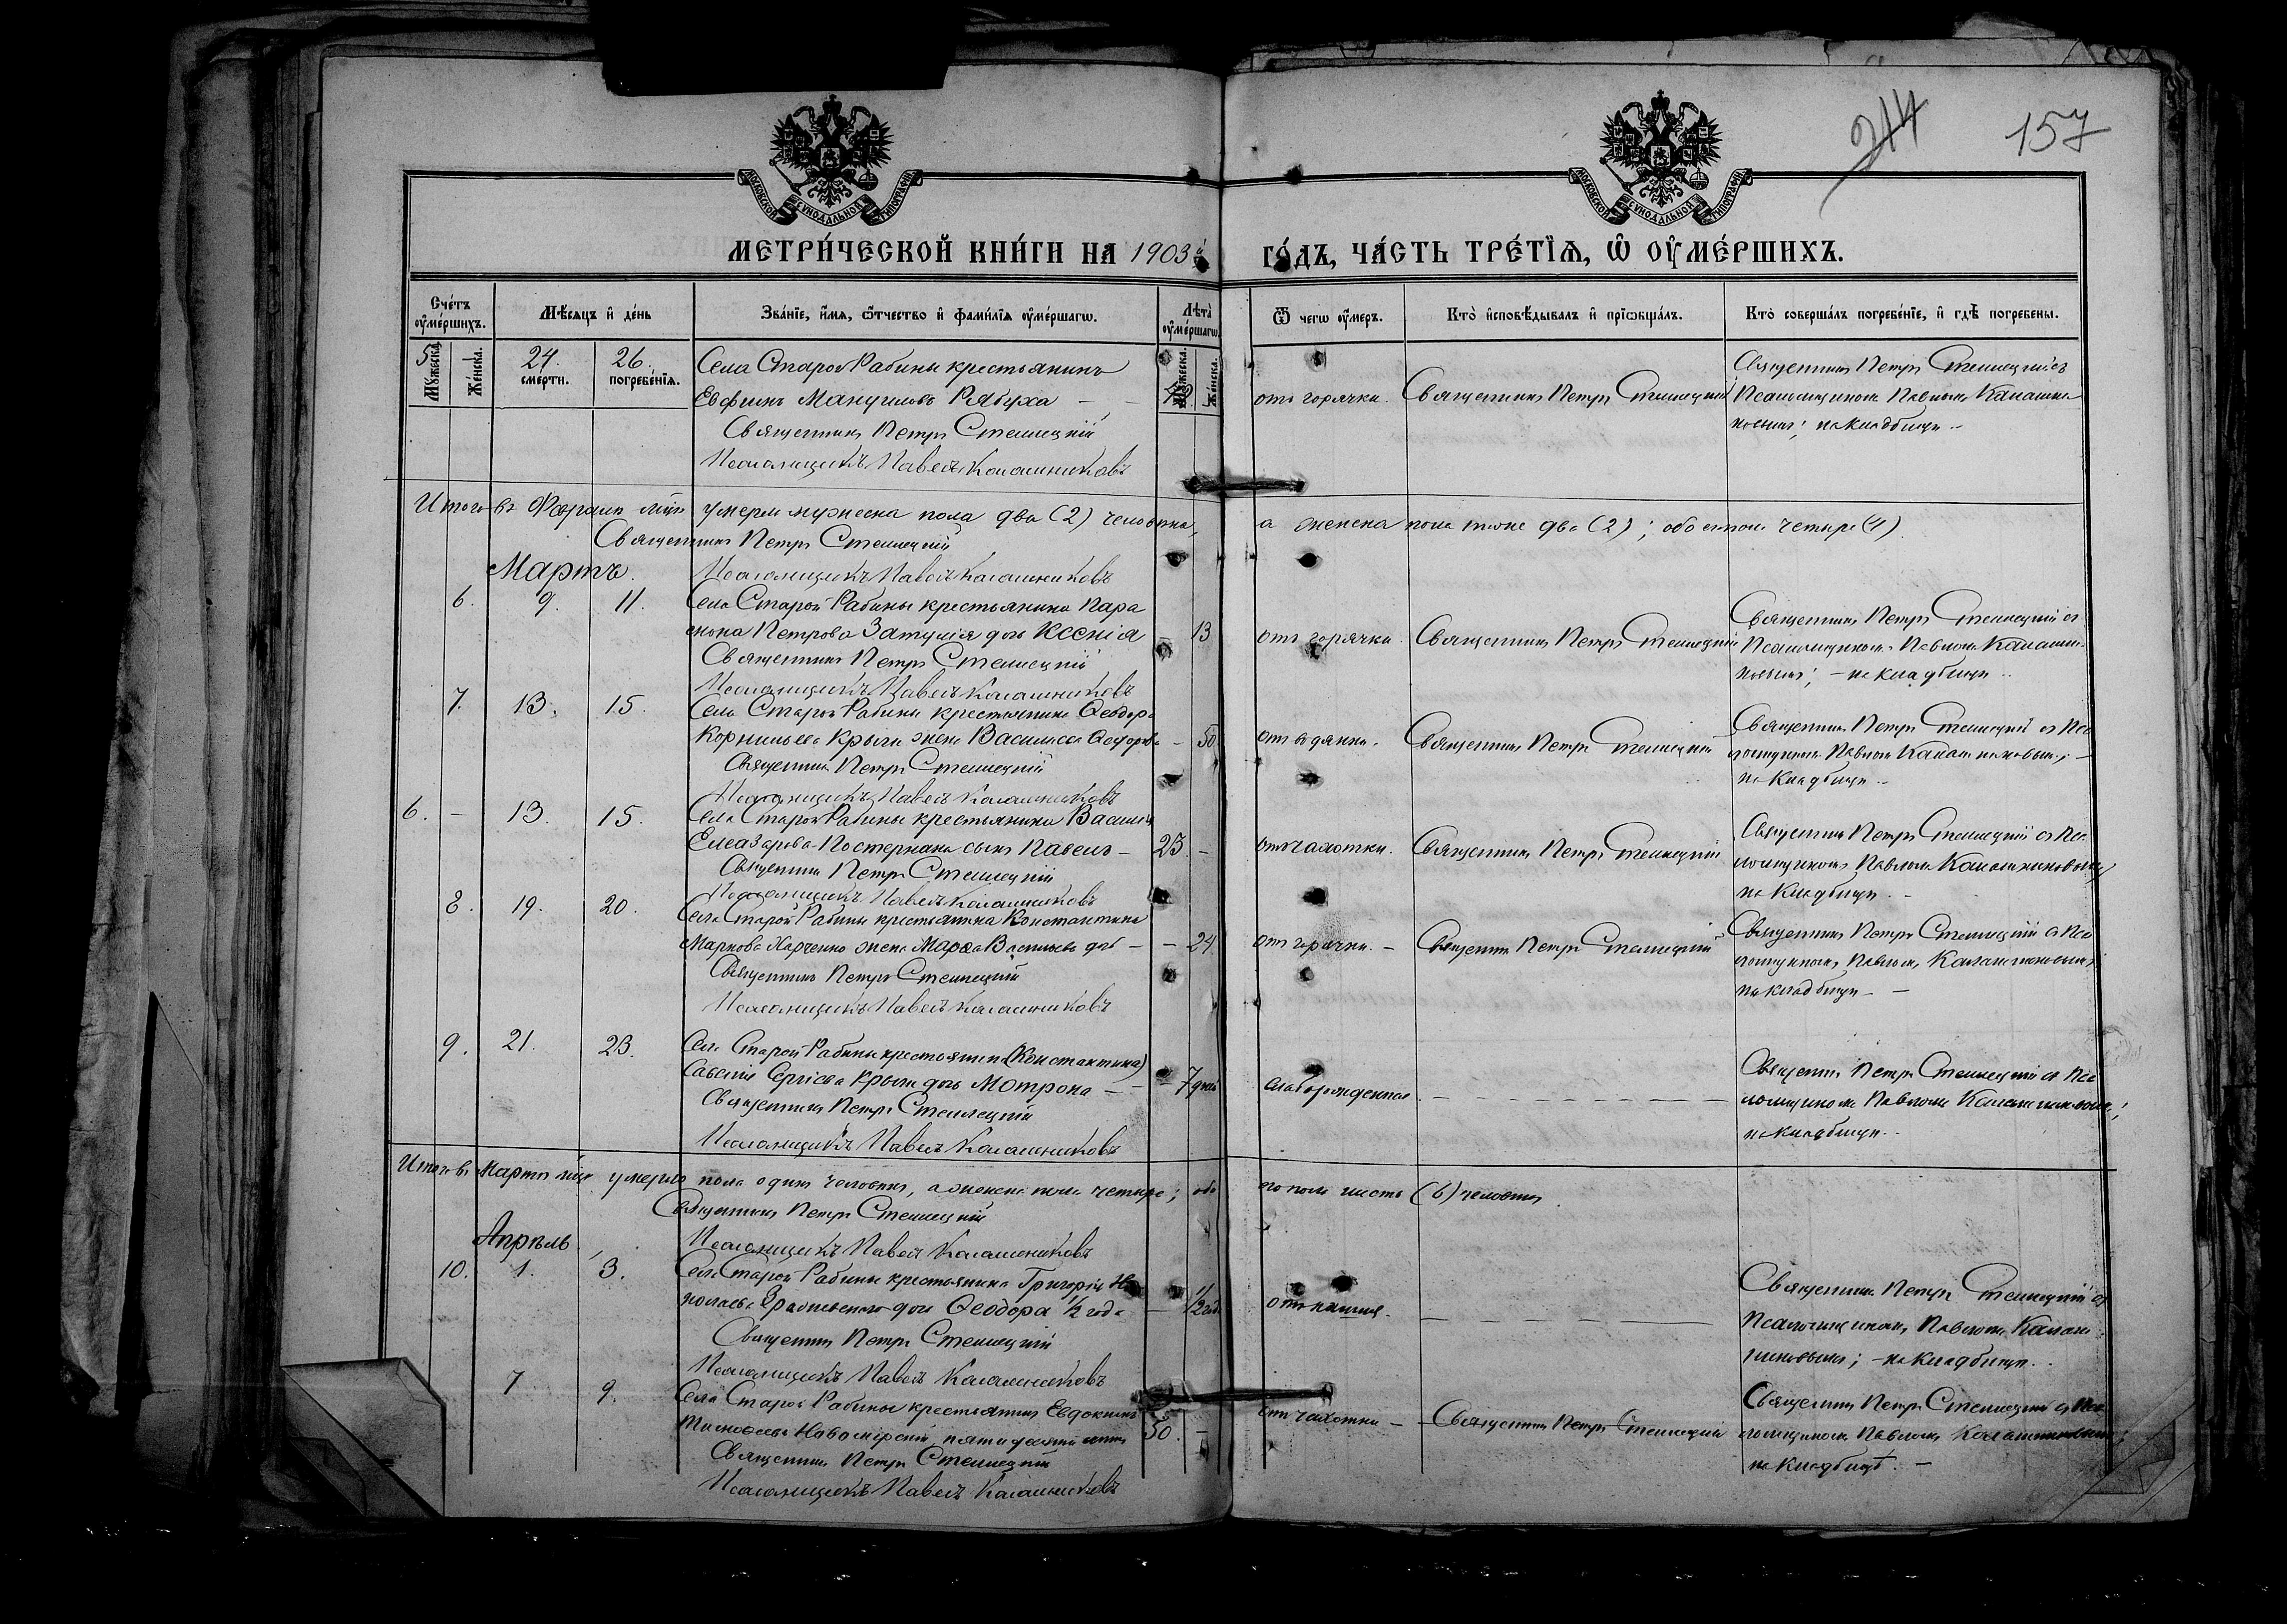 244 157
МОСКОВСКОЙ СѴНОДАЛЬНОЙ ТИПОГРАФІИ
МОСКОВСКОЙ СѴНОДАЛЬНОЙ ТИПОГРАФІИ
МЕТРИ́ЧЕСКОЙ КНИ́ГИ НА 1903 й ГО́ДЪ, ЧА́СТЬ ТРЕ́ТІѦ, Ѡ҆ ОУ҆МЕ́РШИХЪ.
Сче́тъ оу҆ме́ршихъ.
Мѣ́сѧцъ и҆ де́нь
Зва́нїе, и҆́мѧ, ѻ҆́тчество и҆ фами́лїѧ оу҆ме́ршагѡ.
Лѣта̀ оу҆ме́ршагѡ.
Ѿ чегѡ̀ оу҆́меръ.
Кто̀ и҆сповѣ́дывалъ и҆ прїѡбща́лъ.
Кто̀ соверша́лъ погребе́нїе, и҆ гдѣ̀ погребены̀.
Мꙋ́жеска. Же́нска. сме́рти. погребе́нїѧ. Мꙋ́жеска. Же́нска.
5 24. 26. Села Старой Рабины крестьянинъ
Евфимъ Мануиловъ Рябуха –
Священникъ Петръ Стеллецкій
Псаломщикъ Павелъ Калашниковъ
отъ горячки. Священникъ Петръ Стеллецкій
Священникъ Петръ Стеллецкій съ
Псаломщикомъ Павломъ Калашни
ковымъ; на кладбищѣ –
Итого въ Февралѣ м-цѣ умерли мужеска пола два (2) человѣка, а женска пола тоже два (2); обоего пола четыре (4)
Священникъ Петръ Стеллецкій
Псаломщикъ Павелъ Калашниковъ
Мартъ.
6. 9. 11. Села Старой Рабины крестьянина Пара
мона Петрова Затулія дочь Ксенія – 13
Священникъ Петръ Стеллецкій
Псаломщикъ Павелъ Калашниковъ
отъ горячки. Священникъ Петръ Стеллецкій
Священникъ Петръ Стеллецкій съ
Псаломщикомъ Павломъ Калашни
ковымъ; – на кладбищѣ
7. 13. 15. Села Старой Рабины крестьянина Ѳеодора
Корнильева Крыли жена Василисса Ѳеодорова – 50
Священникъ Петръ Стеллецкій
Псаломщикъ Павелъ Калашниковъ
отъ водянки. Священникъ Петръ Стеллецкій
Священникъ Петръ Стеллецкій съ Пса
ломщикомъ Павломъ Калашниковымъ; –
на кладбищѣ
6. – 13. 15. Села Старой Рабины крестьянина Василія
Елеазарова Постернака сынъ Павелъ – 23 –
Священникъ Петръ Стеллецкій
Псаломщикъ Павелъ Калашниковъ
отъ чахотки. Священникъ Петръ Стеллецкій
Священникъ Петръ Стеллецкій съ Пса
ломщикомъ Павломъ Калашниковымъ
на кладбищѣ. –
8. 19. 20. Села Старой Рабины крестьянина Константина
Маркова Харченко жена Марѳа Васильева дочь – – 24
Священникъ Петръ Стеллецкій
Псаломщикъ Павелъ Калашниковъ
отъ горячки. – Священникъ Петръ Стеллецкій
Священникъ Петръ Стеллецкій съ Пса
ломщикомъ Павломъ Калашниковымъ
на кладбищѣ – –
9. 21. 23. Села Старой Рабины крестьянина (Константина)
Савелія Сергіева Крыли дочь Мотрона – – 7 дней
Священникъ Петръ Стеллецкій
Псаломщикъ Павелъ Калашниковъ
слаборожденная
Священникъ Петръ Стеллецкій съ Пса
ломщикомъ Павломъ Калашниковымъ;
на кладбищѣ.
Итого въ Мартѣ м-цѣ умерло пола одинъ человѣкъ, а женска пола четыре; обо его пола шесть (6) человѣкъ
Священникъ Петръ Стеллецкій
Псаломщикъ Павелъ Калашниковъ
Апрѣль
10. 1. 3. Села Старой Рабины крестьянина Григорія Ни
колаева дочь Ѳеодора 1/2 года – 1/2 год.
Священникъ Петръ Стеллецкій
Псаломщикъ Павелъ Калашниковъ
отъ кашля.
Священникъ Петръ Стеллецкій съ
Псаломщикомъ Павломъ Калаш
никовымъ; – на кладбищѣ.
7 9. Села Старой Рабины крестьянинъ Евдокимъ
Тимоѳеевъ пятидесяти лѣтъ 50. –
Священникъ Петръ Стеллецкій
Псаломщикъ Павелъ Калашниковъ
отъ чахотки – Священникъ Петръ Стеллецкій
Священникъ Петръ Стеллецкій съ Пса
ломщикомъ Павломъ Калашниковымъ;
на кладбищѣ. –